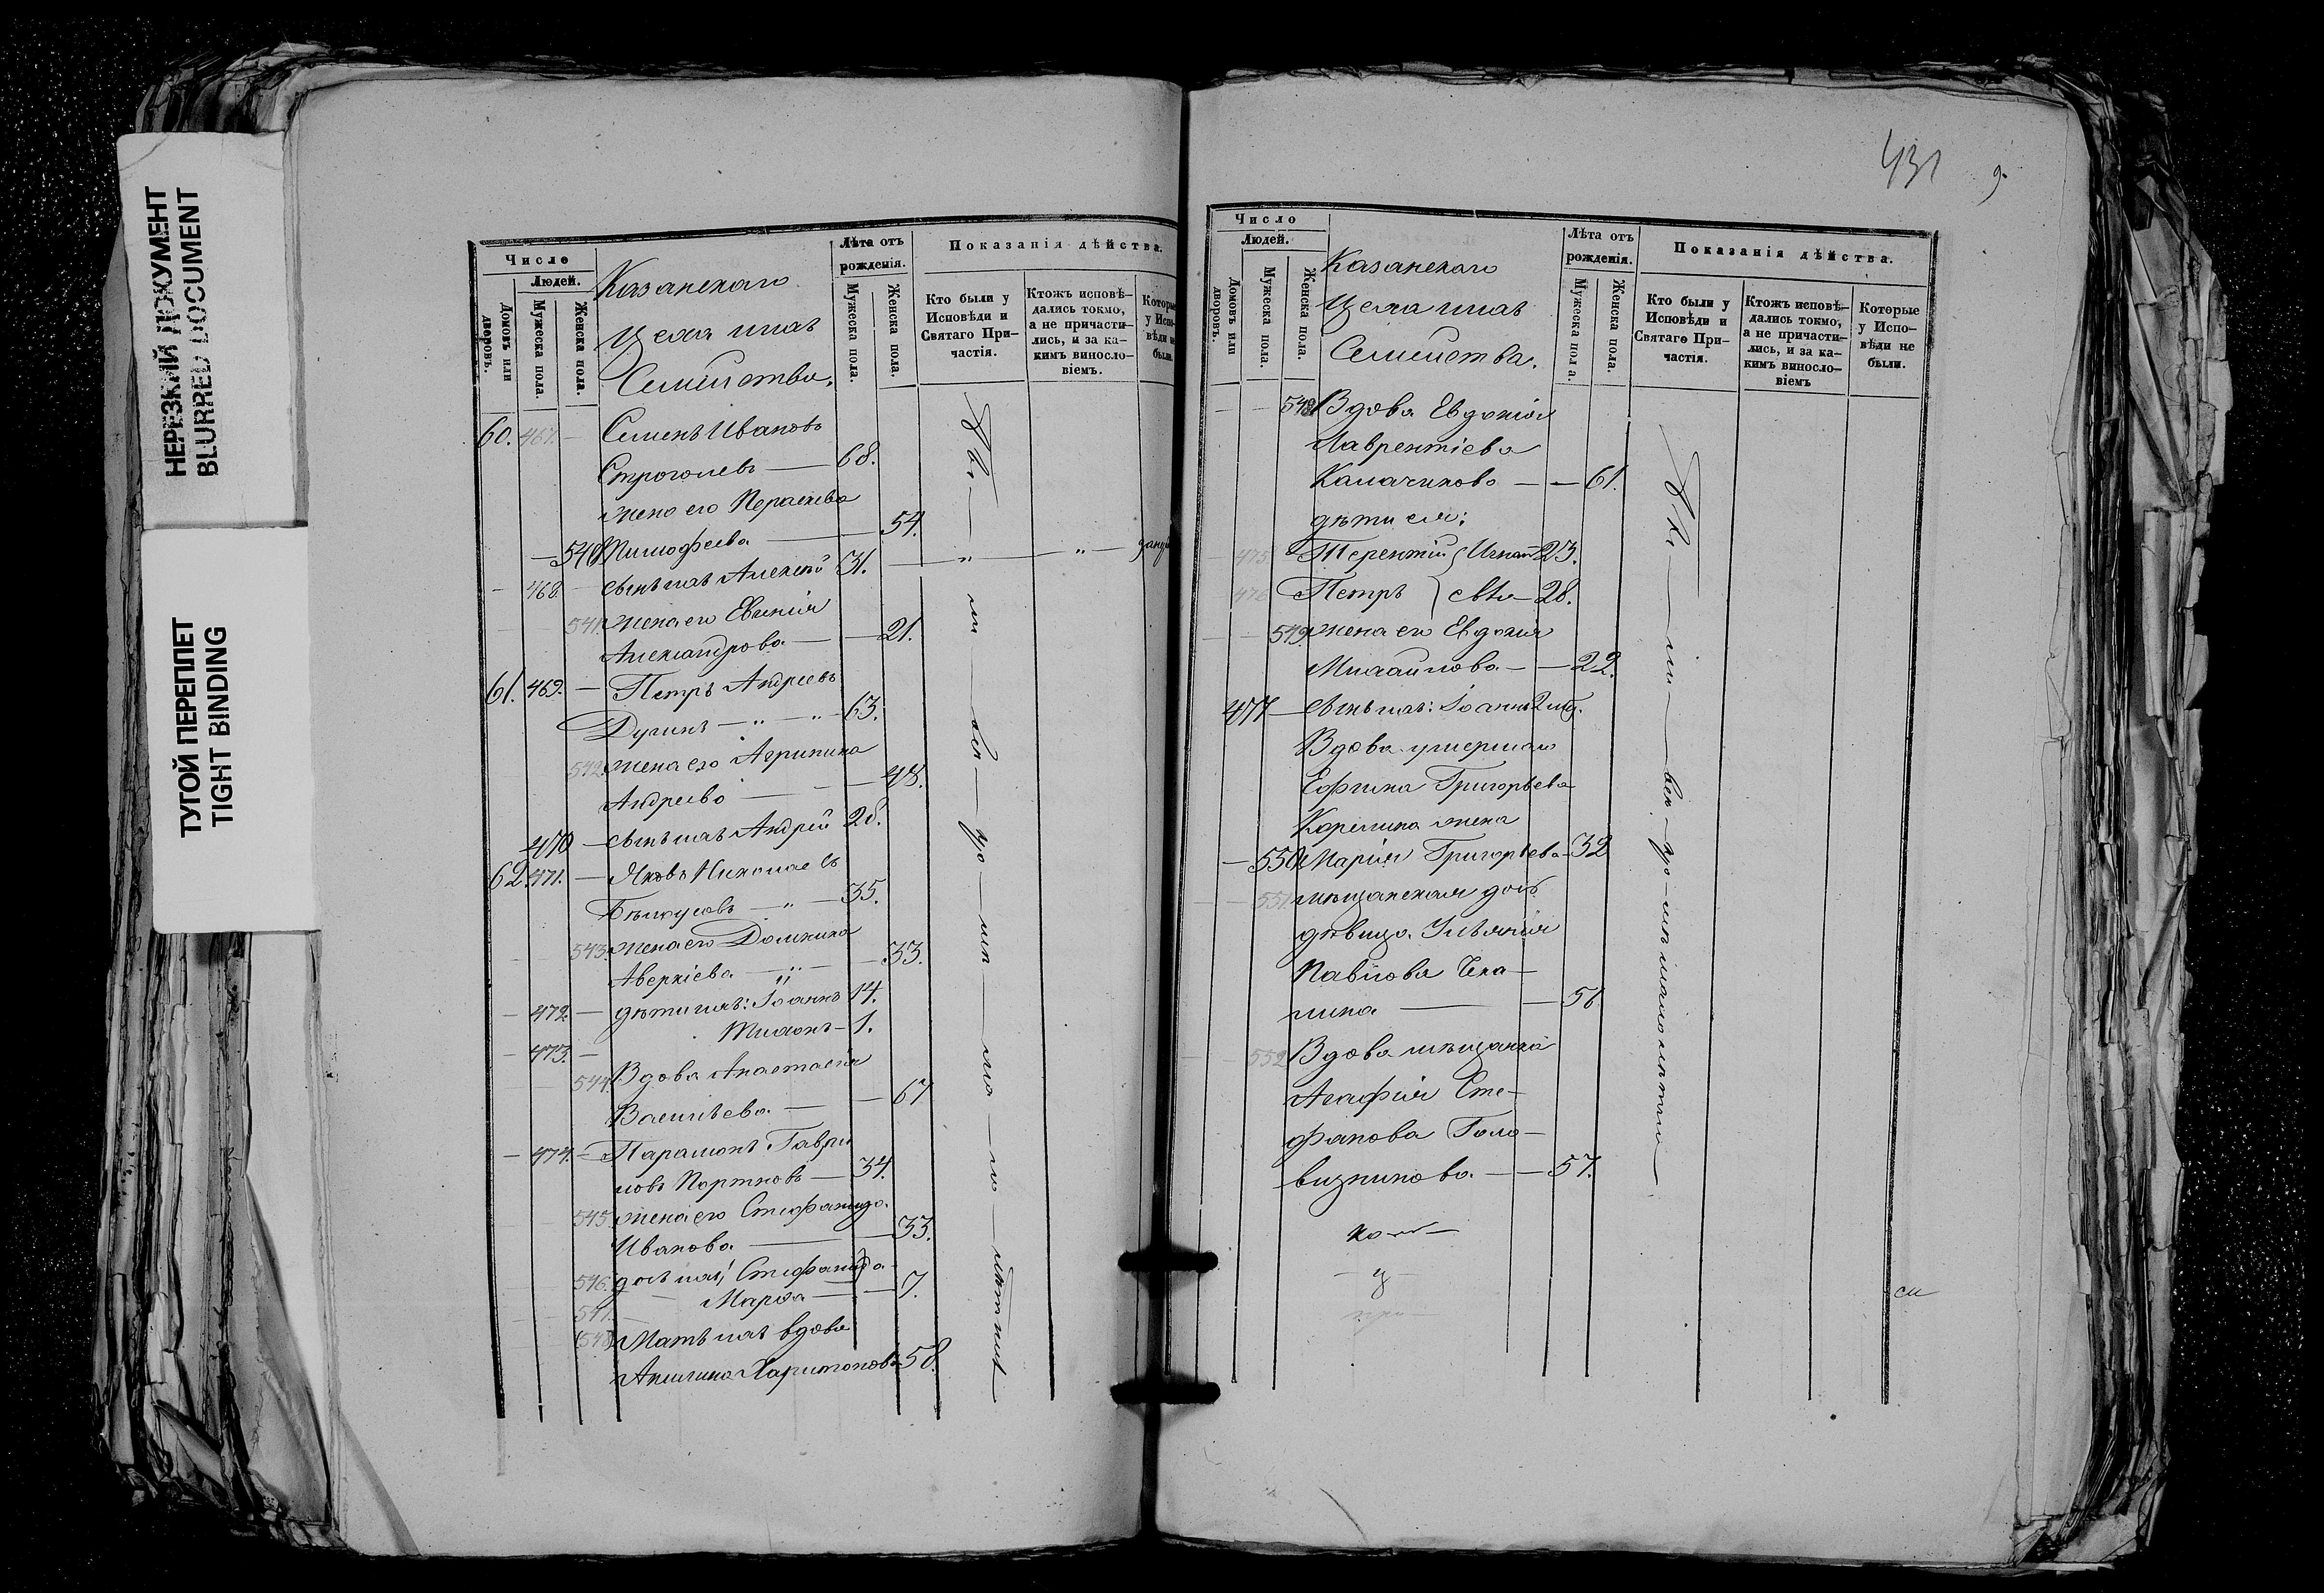 НЕРЕЗКИЙ ДОКУМЕНТ
BLURRED DOCUMENT
ТУГОЙ ПЕРЕПЛЕТ
TIGHT BINDING
Число
Людей.
Домовъ или дворовъ.
Мужеска пола.
Женска пола.
Казанскаго
Лѣта отъ рожденія.
Мужеска пола.
Женска пола.
Показанія дѣйства.
Кто были у Исповѣди и Святаго При-частія.
Ктожъ исповѣ-дались токмо, а не причасти-лись, и за ка-кимъ винosло-віемъ.
Которые у Испо-вѣди не были.
60. 467. Семенъ Ивановъ
Строголевъ — 68.
жена его Параскева
540 Тимофеева — 54.
468. сынъ ихъ Алексѣй 31.
541. жена его Евгенія
Александрова — 21.
61. 469. — Петръ Андреевъ
Дугинъ — 63.
542. жена его Агрипина
Андреева — 48.
470 — сынъ ихъ Андрей 28.
62. 471. — Яковъ Николаевъ
Бѣлоусовъ — 35.
543. жена его Домникия
Аверкіева — 33.
472. — дѣти ихъ: Іоаннъ 14.
473. — Тихонъ — 1.
544. Вдова Анастасія
Васильева — 67
474. — Парамонъ Гаври
ловъ Портновъ — 34.
545. жена его Стефанида
Иванова — 33.
546. дочь ихъ, Стефанида
547. Марѳа — 7.
548 Мать ихъ вдова
Акилина Харитонова 58.
431
Число
Людей.
Домовъ или дворовъ.
Мужеска пола.
Женска пола.
Казанскаго
Семейства.
Лѣта отъ рожденія.
Мужеска пола.
Женска пола.
Показанія дѣйства.
Кто были у Исповѣди и Святаго При-частія.
Ктожъ исповѣ-дались токмо, а не причасти-лись, и за ка-кимъ виносло-віемъ
Которые у Испо-вѣди не были.
548 Вдова Евдокія
Лаврентіева
Калачикова — 61.
дѣти ея:
475 Терентій 23.
476 Петръ 28.
549. жена его Евдокія
Михайлова — 22.
477 — сынъ ихъ: Іоаннъ
Вдова умершаго
Григорьева
жена
550 Марія Григорьева 32
551. мѣщанская дочь
дѣвица Ульянія
Павлова
лина — 56
552 Вдова мѣщанка
Агафія Сте-
фанова Голо-
визникова — 57.